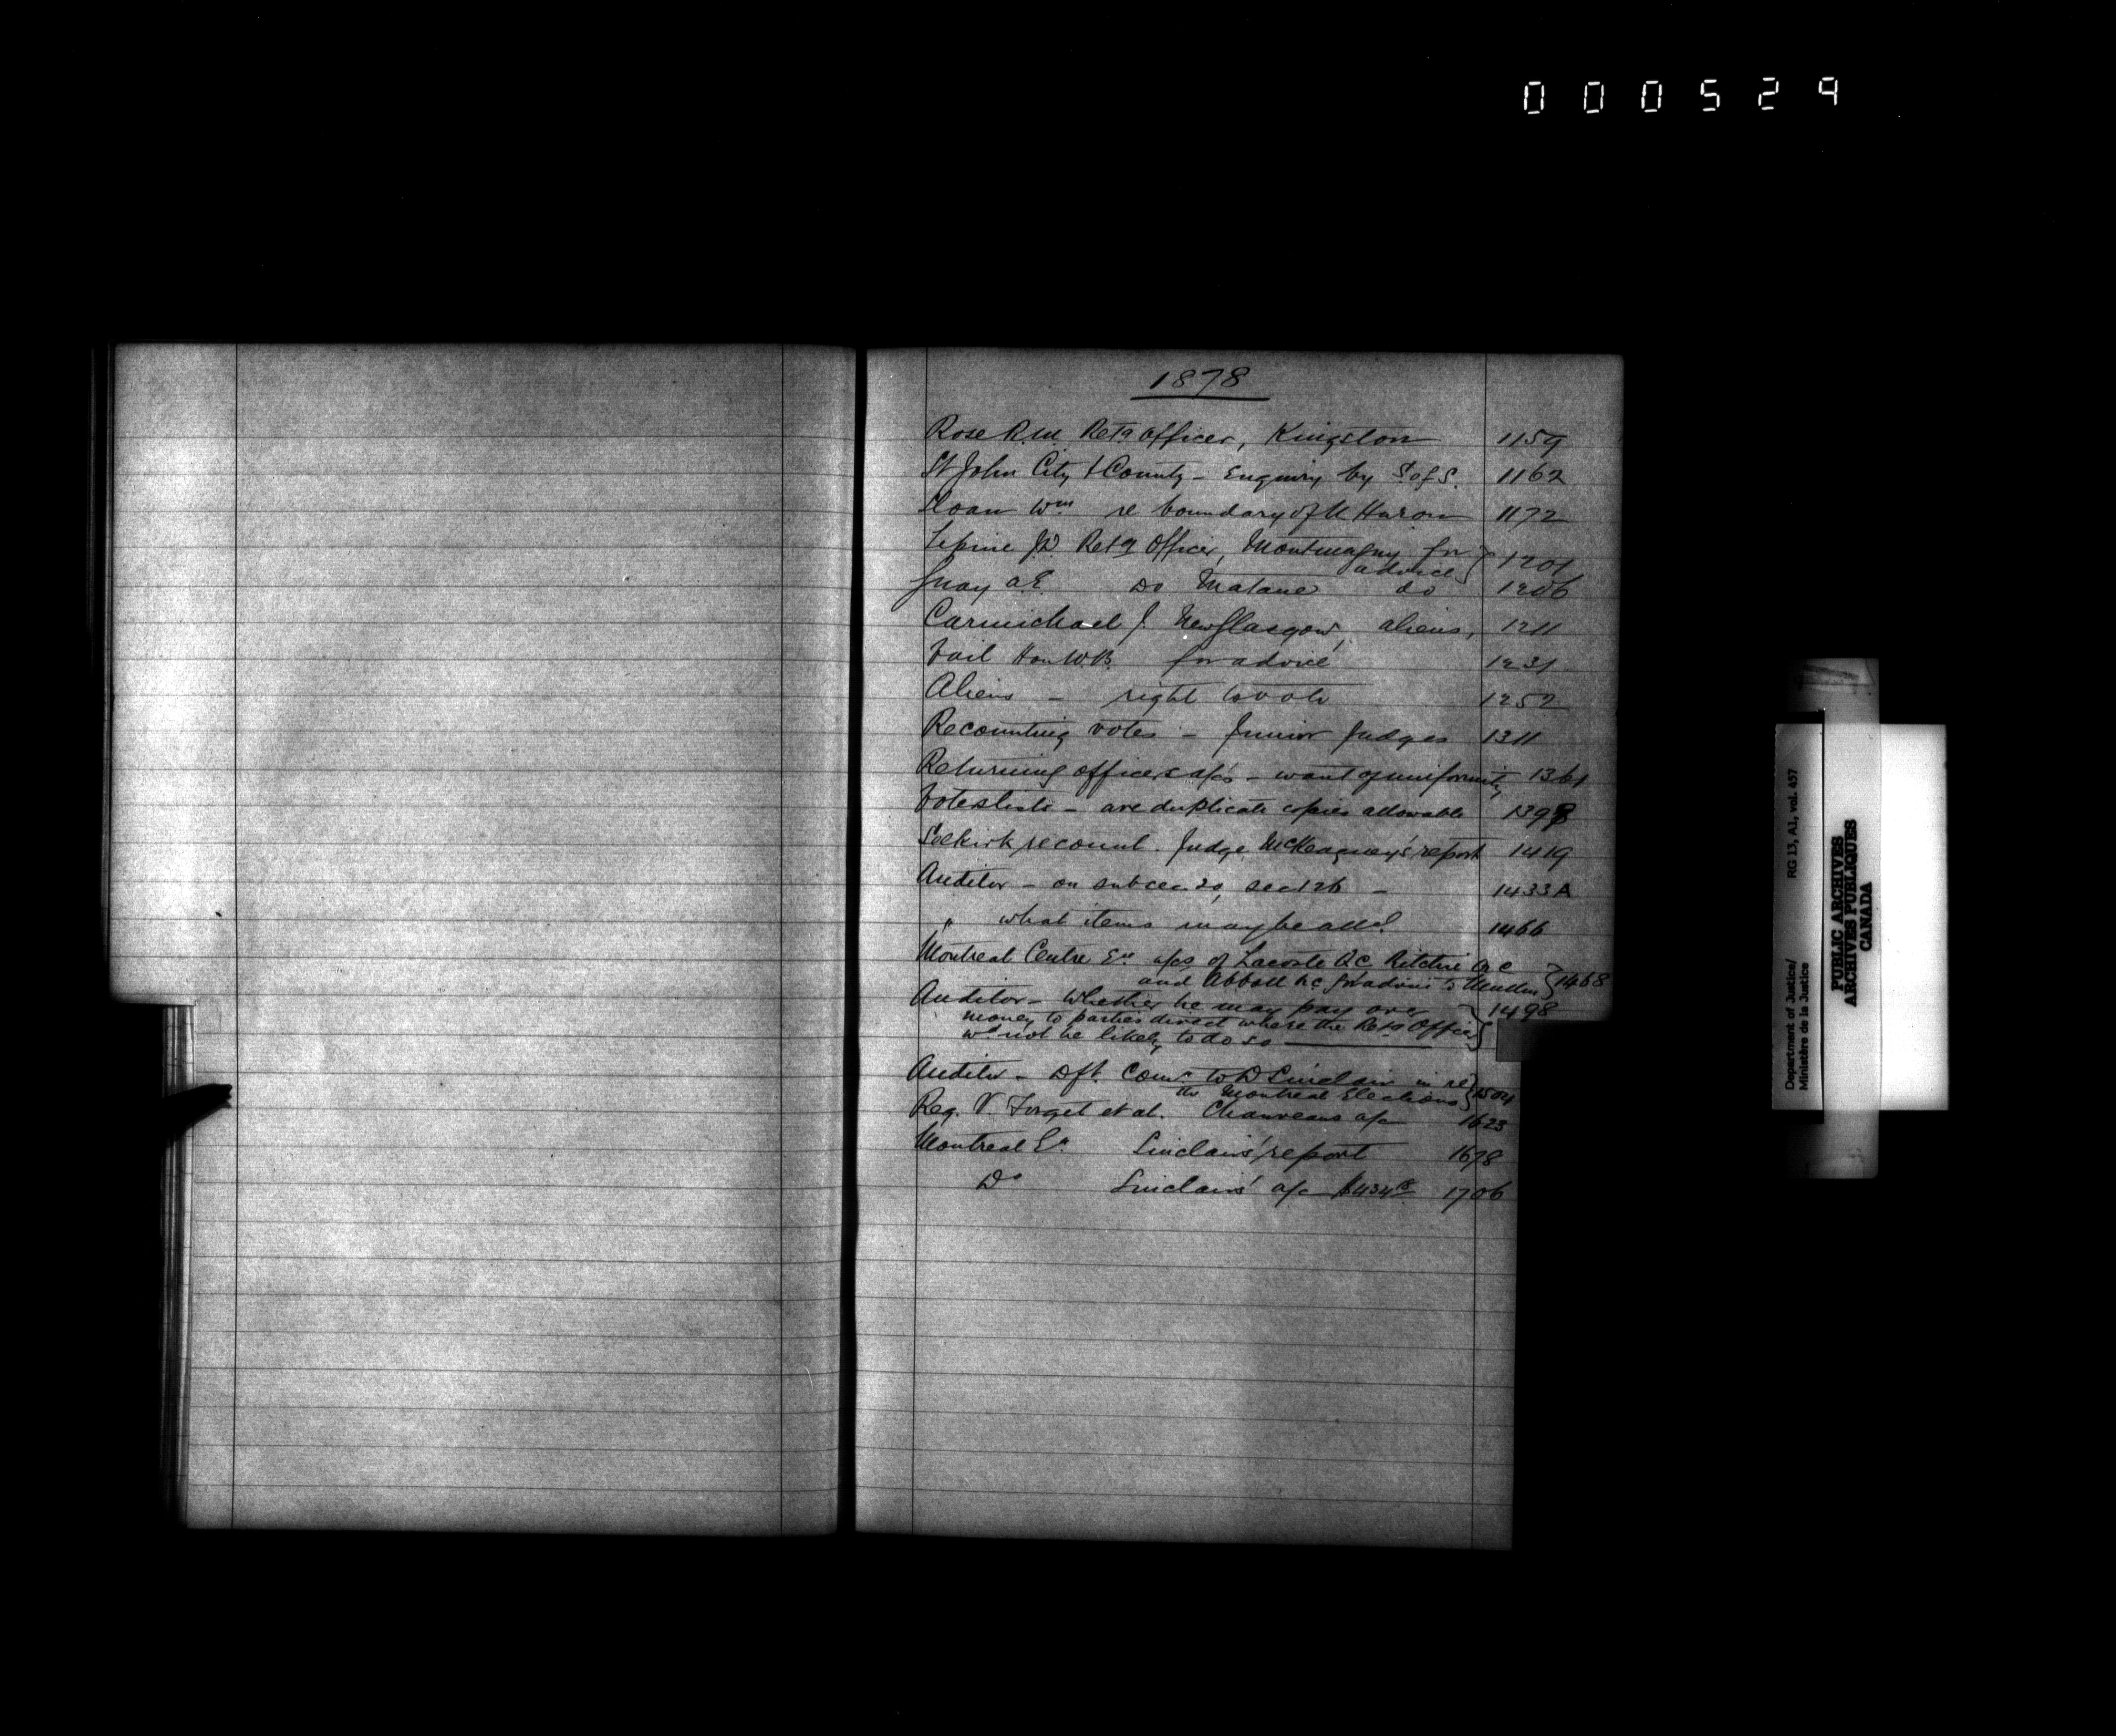 000529
1878
Rose R.M. Retg Officer, Kingston 1159
St John City & County - Enquiry by S of S. 1162
Sloan Wm re boundary of N Huron 1172
Lepine J.D. Retg Officer, Montmagny for 1201
advice
Guay A.E. Do Matane do 1206
Carmichael J. New Glasgow, aliens, 1211
Vail Hon W.B. for advice 1231
Aliens - right to vote 1252
Recounting votes - Junior Judges 1311
Returning officers a/cs - want of uniformity 1361
Voters lists - are duplicate copies allowable 1398
Selkirk recount. Judge McKeagney's report 1419
Auditor - on subsec 20, sec 126 - 1433A
" what items may be alld 1466
Montreal Centre En a/cs of Lacoste QC Ritchie QC
and Abbott QC for advice to 1468
Auditor - Whether he may pay over 1498
money to parties direct where the Retg Officer
wd not be likely to do so
Auditor - Dft. Comn to D Sinclair in re
the Montreal Elections 1504
Reg. V. Forget et al. Chauveau's a/c 1623
Montreal En Sinclair's report 1678
Do Sinclair's a/c $434 1706
Department of Justice/ RG 13, A1, vol. 457
Ministère de la Justice
PUBLIC ARCHIVES
ARCHIVES PUBLIQUES
CANADA